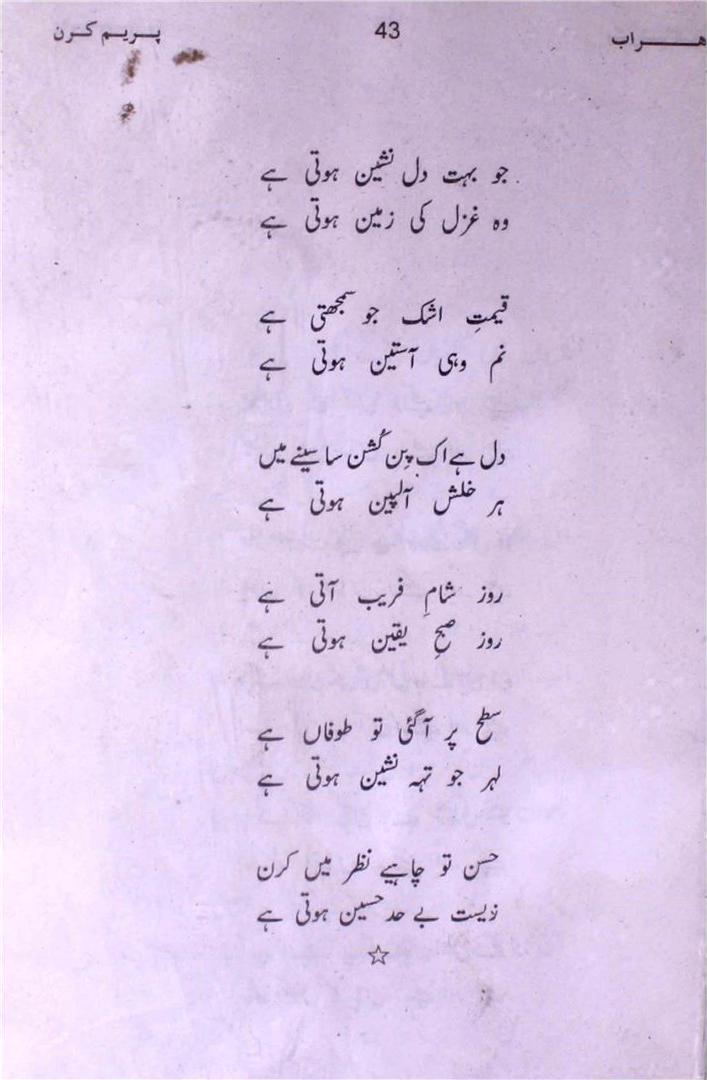 ھراب 43 پریم کرن
جو بہت دل نشین ہوتی ہے
وہ غزل کی زمین ہوتی ہے
قیمتِ اشک جو سمجھتی ہے
نم وہی آستین ہوتی ہے
دل ہے اک پِن کُشن سا سینے میں
ہر خلش آلپین ہوتی ہے
روز شامِ فریب آتی ہے
روز صبحِ یقین ہوتی ہے
سطح پر آگئی تو طوفاں ہے
لہر جو تہہ نشین ہوتی ہے
حسن تو چاہیے نظر میں کرن
زیست بے حد حسین ہوتی ہے